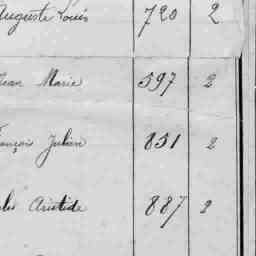 Auguste Louis 720 2
Jean Marie 597 2
François Julien 851 2
Aristide 887 2